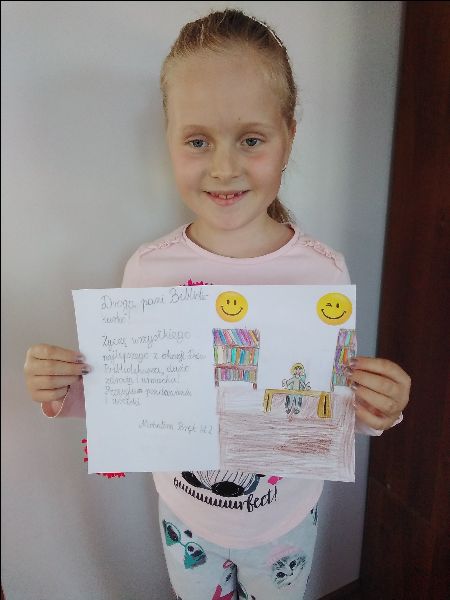 Droga pani Bibliote-
karko!
Życzę wszystkiego
najlepszego z okazji Dnia
Bibliotekarza, dużo
zdrowia i uśmiechu!
Przesyłam pozdrowienia
i uściski
kl. 2
guuuuuuuurrfect!